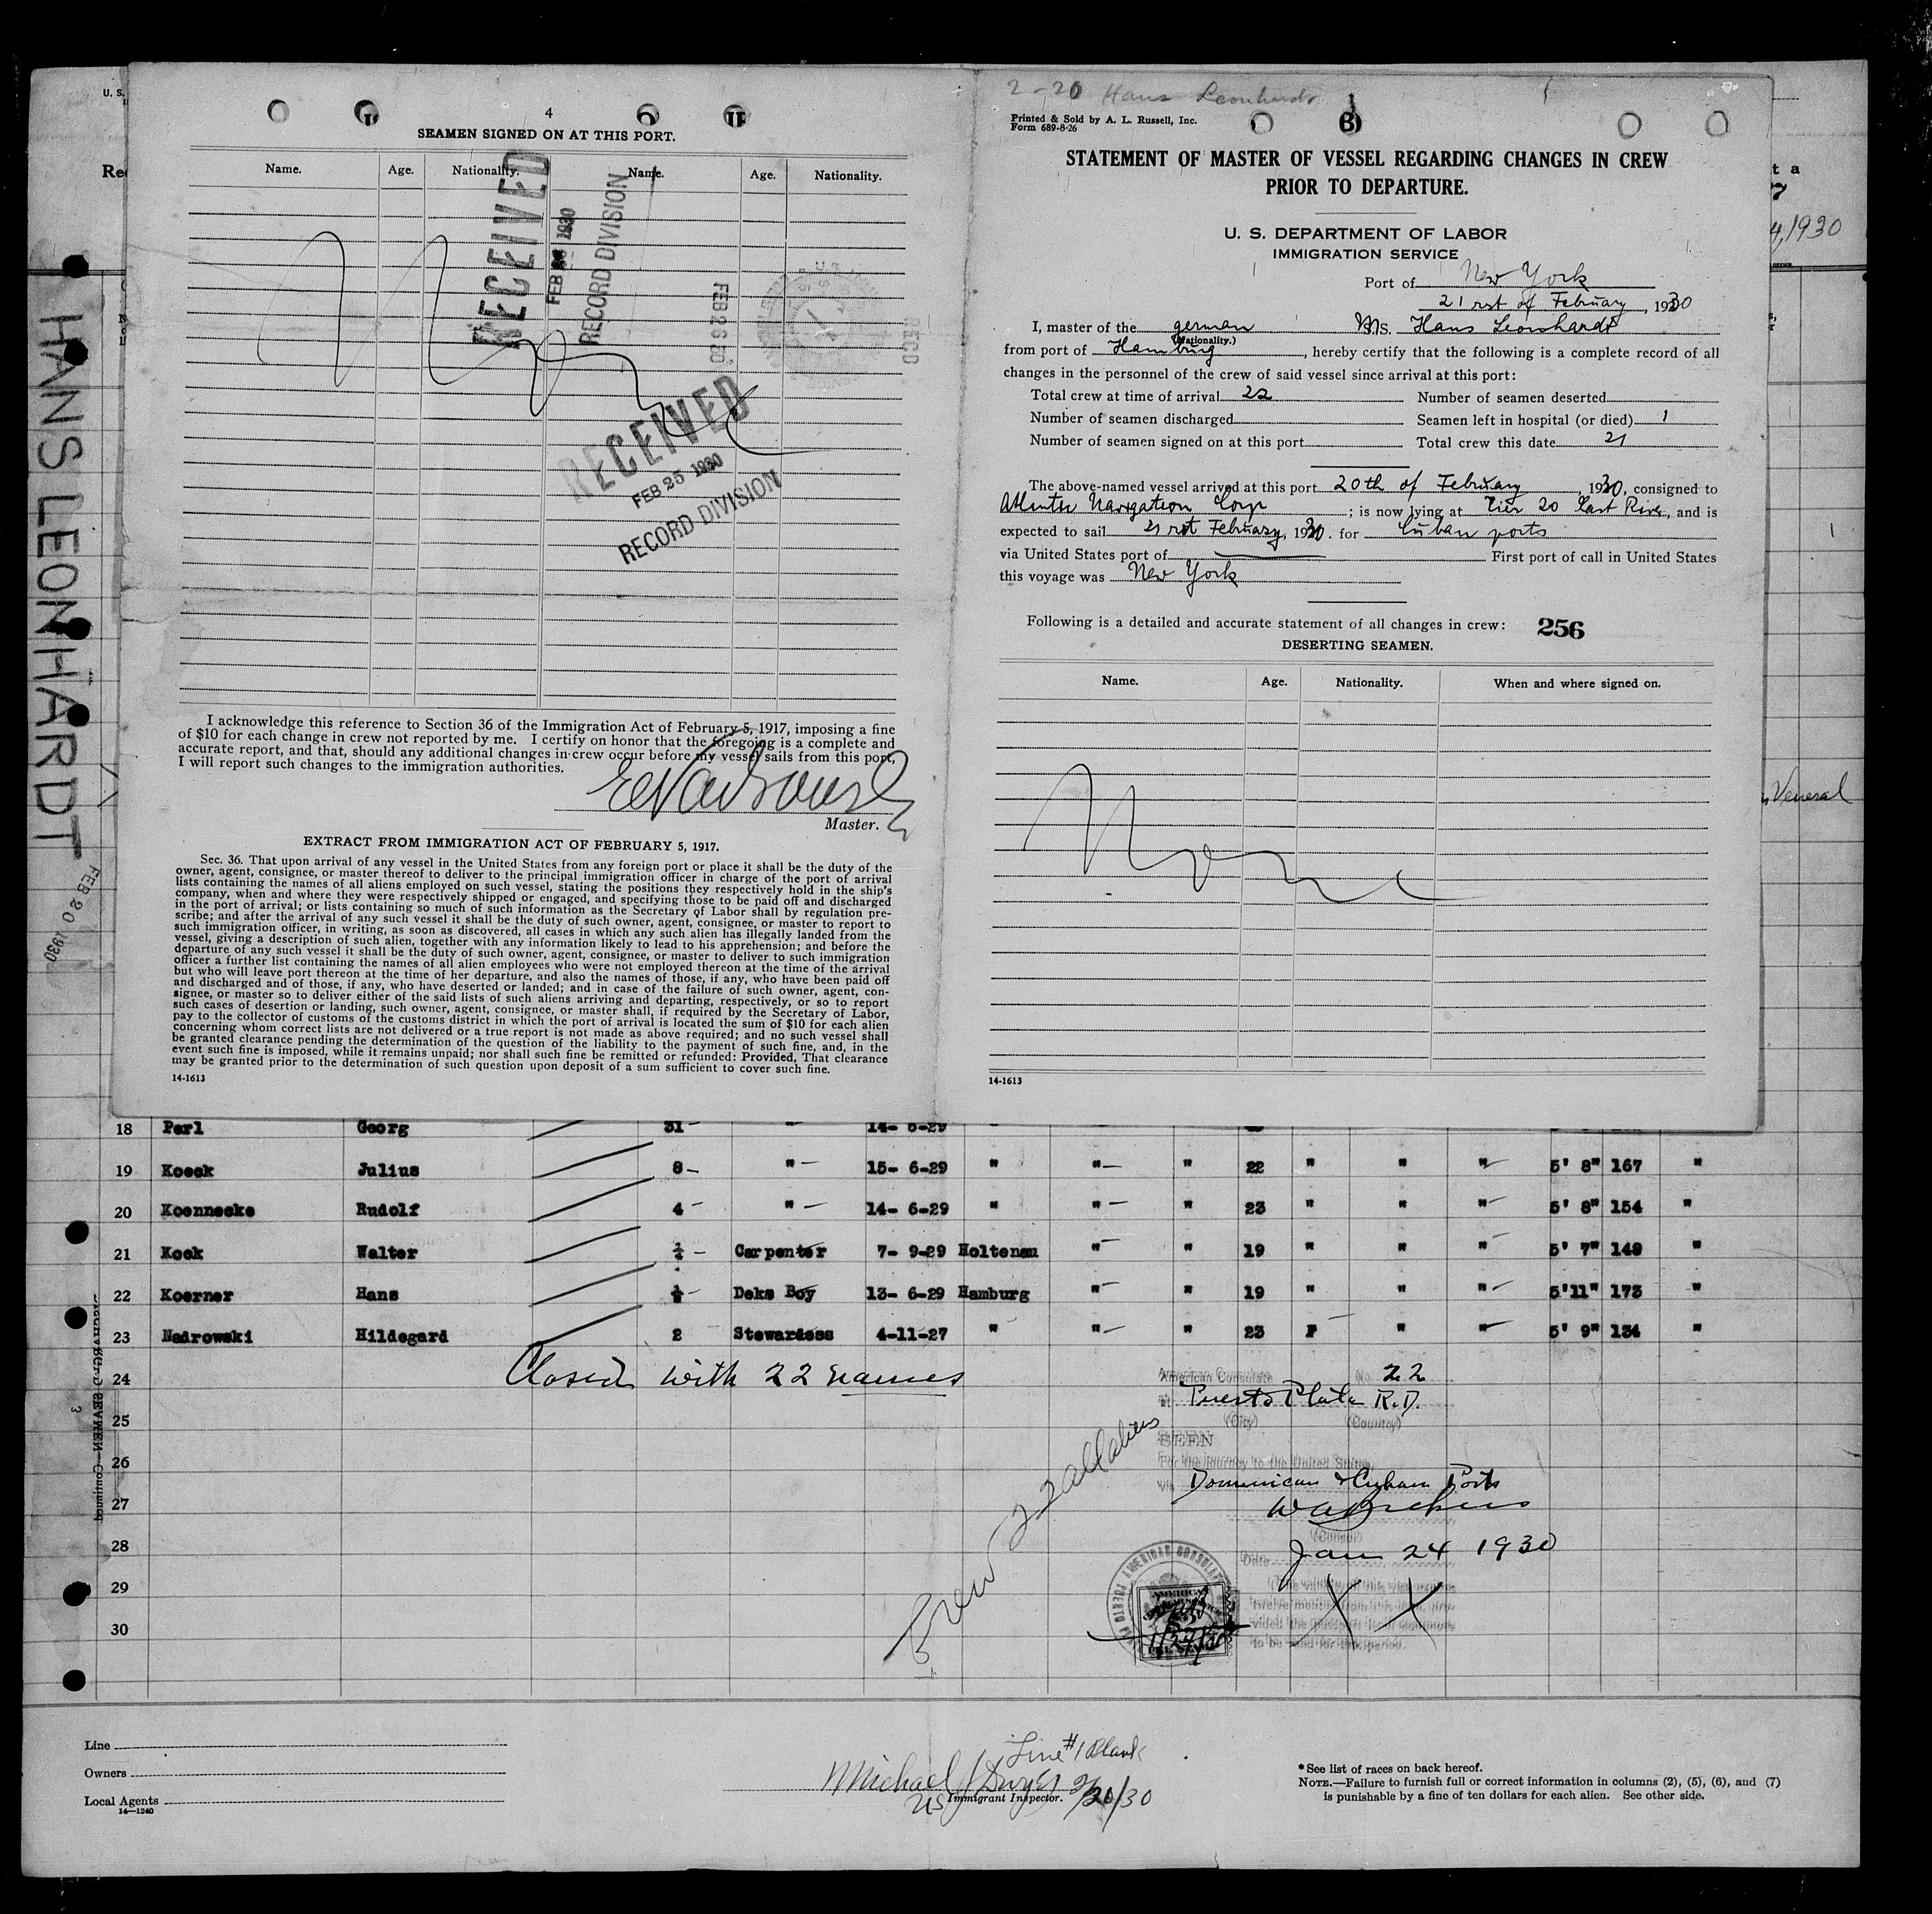 4
SEAMEN SIGNED ON AT THIS PORT.
Name. Age. Nationality. Name. Age. Nationality.
RECEIVED
FEB 1930
RECORD DIVISION
FEB 26 30
RECD
None
RECEIVED
FEB 25 1930
RECORD DIVISION
I acknowledge this reference to Section 36 of the Immigration Act of February 5, 1917, imposing a fine
of $10 for each change in crew not reported by me. I certify on honor that the foregoing is a complete and
accurate report, and that, should any additional changes in crew occur before my vessel sails from this port,
I will report such changes to the immigration authorities.
Master.
EXTRACT FROM IMMIGRATION ACT OF FEBRUARY 5, 1917.
Sec. 36. That upon arrival of any vessel in the United States from any foreign port or place it shall be the duty of the
owner, agent, consignee, or master thereof to deliver to the principal immigration officer in charge of the port of arrival
lists containing the names of all aliens employed on such vessel, stating the positions they respectively hold in the ship's
company, when and where they were respectively shipped or engaged, and specifying those to be paid off and discharged
in the port of arrival; or lists containing so much of such information as the Secretary of Labor shall by regulation pre-
scribe; and after the arrival of any such vessel it shall be the duty of such owner, agent, consignee, or master to report to
such immigration officer, in writing, as soon as discovered, all cases in which any such alien has illegally landed from the
vessel, giving a description of such alien, together with any information likely to lead to his apprehension; and before the
departure of any such vessel it shall be the duty of such owner, agent, consignee, or master to deliver to such immigration
officer a further list containing the names of all alien employees who were not employed thereon at the time of the arrival
but who will leave port thereon at the time of her departure, and also the names of those, if any, who have been paid off
and discharged and of those, if any, who have deserted or landed; and in case of the failure of such owner, agent, con-
signee, or master so to deliver either of the said lists of such aliens arriving and departing, respectively, or so to report
such cases of desertion or landing, such owner, agent, consignee, or master shall, if required by the Secretary of Labor,
pay to the collector of customs of the customs district in which the port of arrival is located the sum of $10 for each alien
concerning whom correct lists are not delivered or a true report is not made as above required; and no such vessel shall
be granted clearance pending the determination of the question of the liability to the payment of such fine, and, in the
event such fine is imposed, while it remains unpaid; nor shall such fine be remitted or refunded: Provided, That clearance
may be granted prior to the determination of such question upon deposit of a sum sufficient to cover such fine.
14-1613
2-20 Hans Leonhardt
Printed & Sold by A. L. Russell, Inc.
Form 689-8-26
STATEMENT OF MASTER OF VESSEL REGARDING CHANGES IN CREW
PRIOR TO DEPARTURE.
U. S. DEPARTMENT OF LABOR
IMMIGRATION SERVICE
Port of New York
21 rst of February, 1930
I, master of the german MS. Hans Leonhardt
(Nationality.)
from port of Hamburg, hereby certify that the following is a complete record of all
changes in the personnel of the crew of said vessel since arrival at this port:
Total crew at time of arrival 22 Number of seamen deserted
Number of seamen discharged Seamen left in hospital (or died) 1
Number of seamen signed on at this port Total crew this date 21
The above-named vessel arrived at this port 20th of February 1930, consigned to
Atlantic Navigation Corp; is now lying at Pier 20 East River, and is
expected to sail 21 rst February, 1930. for Cuban ports
via United States port of First port of call in United States
this voyage was New York
Following is a detailed and accurate statement of all changes in crew: 256
DESERTING SEAMEN.
Name. Age. Nationality. When and where signed on.
None
14-1613
U. S.
Re
t a
4, 1930
1
Veneral
HANS LEONHARDT
FEB 20 1930
18 Perl Georg 31 " 14- 6-29 "
19 Koeck Julius 8- "- 15- 6-29 " "- " 22 " " "- 5' 8" 167 "
20 Koennecke Rudolf 4- "- 14- 6-29 " "- " 23 " " "- 5' 8" 154 "
21 Kock Walter ½- Carpenter 7- 9-29 Holtenau "- " 19 " " "- 5' 7" 149 "
22 Koerner Hans ½- Deks Boy 13- 6-29 Hamburg "- " 19 " " "- 5'11" 173 "
23 Nadrowski Hildegard 2 Stewardess 4-11-27 " "- " 23 F " "- 5' 9" 134 "
24 Closed with 22 names
25
26
27
28
29
30
American Consulate No. 22
at Puerto Plata R.D.
(City) (Country)
SEEN
For the journey to the United States,
via Dominican & Cuban Ports
(Consul)
Date Jan 24 1930
Crew 22 all aliens
Line
Owners
Local Agents
14-1240
Line #1 Blank
Michael J Dwyer 2/20/30
US Immigrant Inspector.
* See list of races on back hereof.
NOTE.—Failure to furnish full or correct information in columns (2), (5), (6), and (7)
is punishable by a fine of ten dollars for each alien. See other side.